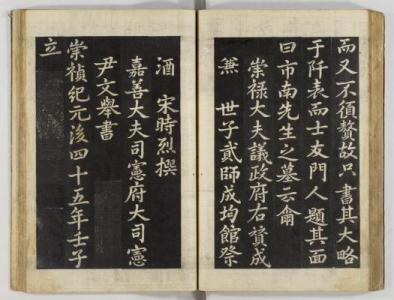 而又不須贅故只書其大略
于阡表而士友門人題其面
曰市南先生之墓云爾
崇祿大夫議政府右贊成
兼世子貳師成均館祭
酒宋時烈撰
嘉善大夫司憲府大司憲
尹文擧書
崇禎紀元後四十五年壬子
立